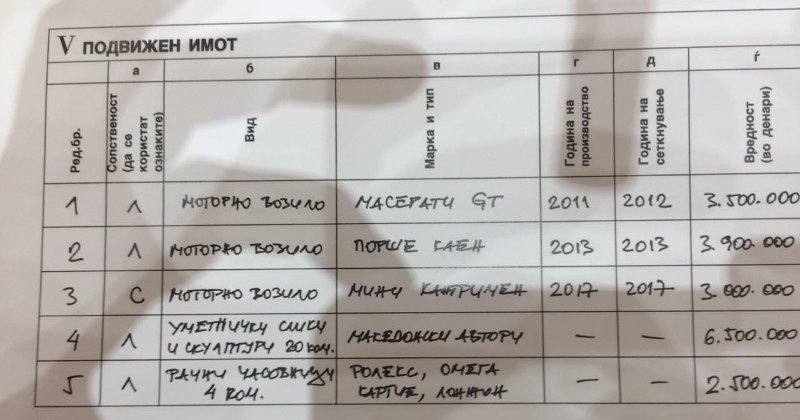 V ПОДВИЖЕН ИМОТ
а б в г д ѓ
Ред.бр. Сопственост (да се користат ознаките) Вид Марка и тип Година на производство Година на сеткнување Вредност (во денари)
1 Л МОТОРНО ВОЗИЛО МАСЕРАТИ GT 2011 2012 3.500.000
2 Л МОТОРНО ВОЗИЛО ПОРШЕ КАЕН 2013 2013 3.900.000
3 С МОТОРНО ВОЗИЛО МИНИ КАНТРИМЕН 2017 2017 3.000.000
4 Л УМЕТНИЧКИ СЛИКИ И СКУЛПТУРИ 20 КОМ. МАКЕДОНСКИ АВТОРИ — — 6.500.000
5 Л РАЧНИ ЧАСОВНИЦИ 4 КОМ. РОЛЕКС, ОМЕГА КАРТИЕ, ЛОНЖИН — — 2.500.000